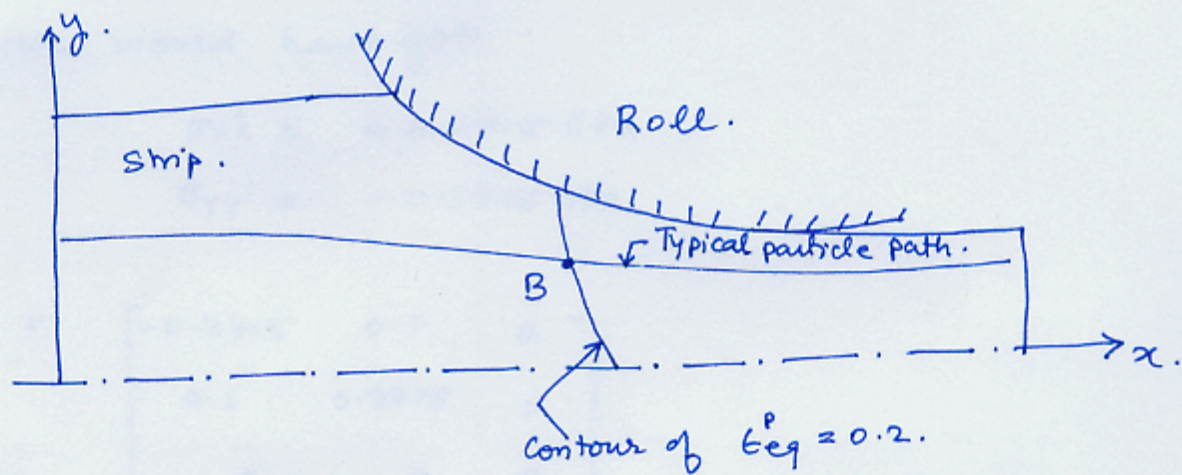 y.
Roll.
Strip.
Typical particle path.
B
x.
Contour of ϵᵖeq = 0.2.